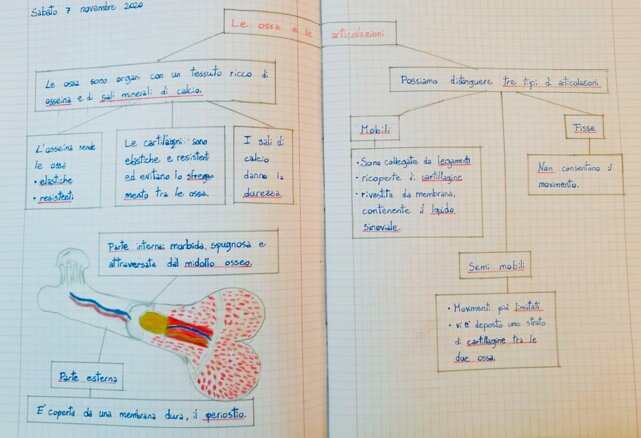 Sabato 7 novembre 2020
Le ossa e le articolazioni
Le ossa sono organi con un tessuto ricco di
osseina e di sali minerali di calcio.
L'osseina rende
le ossa
• elastiche
• resistenti
Le cartilagini sono
elastiche e resistenti
ed evitano lo sfrega-
mento tra le ossa.
I sali di
calcio
danno la
durezza.
Parte interna: morbida, spugnosa e
attraversata dal midollo osseo.
Parte esterna
E' coperta da una membrana dura, il periostio.
Possiamo distinguere tre tipi di articolazioni
Mobili
• Sono collegate da legamenti
• ricoperte di cartillagine
• rivestita da membrana,
contenente il liquido
sinoviale.
Fisse
Non consentono il
movimento.
Semi mobili
• Movimenti più limitati
• vi e' deposto uno strato
di cartillagine tra le
due ossa.